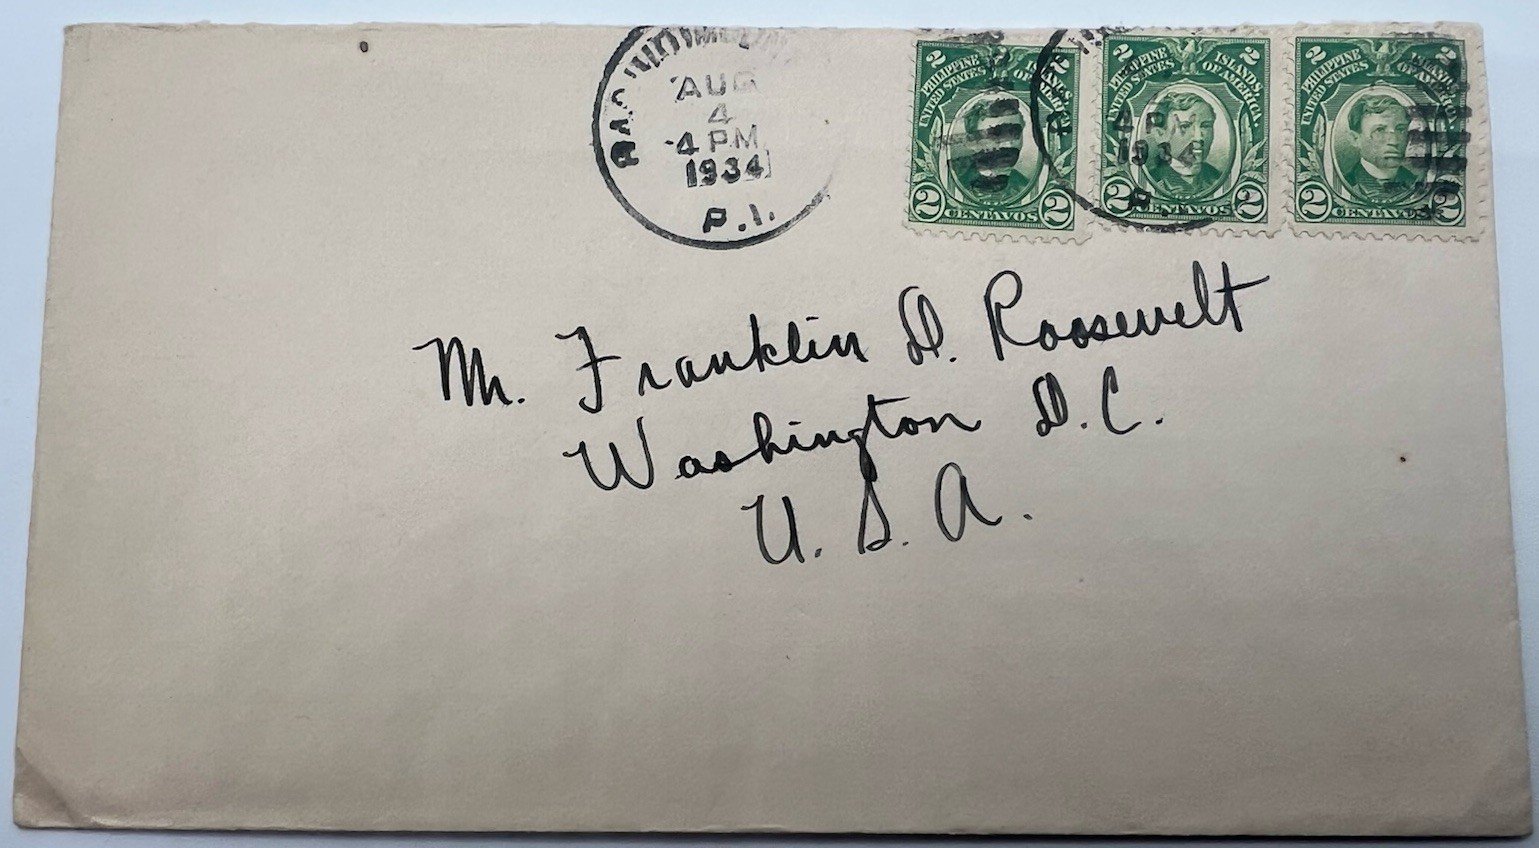 AUG
4
4 PM
1934
P.I.
2 2
PHILIPPINE ISLANDS
UNITED STATES OF AMERICA
2 CENTAVOS 2
2 2
PHILIPPINE ISLANDS
UNITED STATES OF AMERICA
4 PM
1934
P.
2 CENTAVOS 2
2 2
PHILIPPINE ISLANDS
UNITED STATES OF AMERICA
2 CENTAVOS 2
Mr. Franklin D. Roosevelt
Washington D.C.
U.S.A.